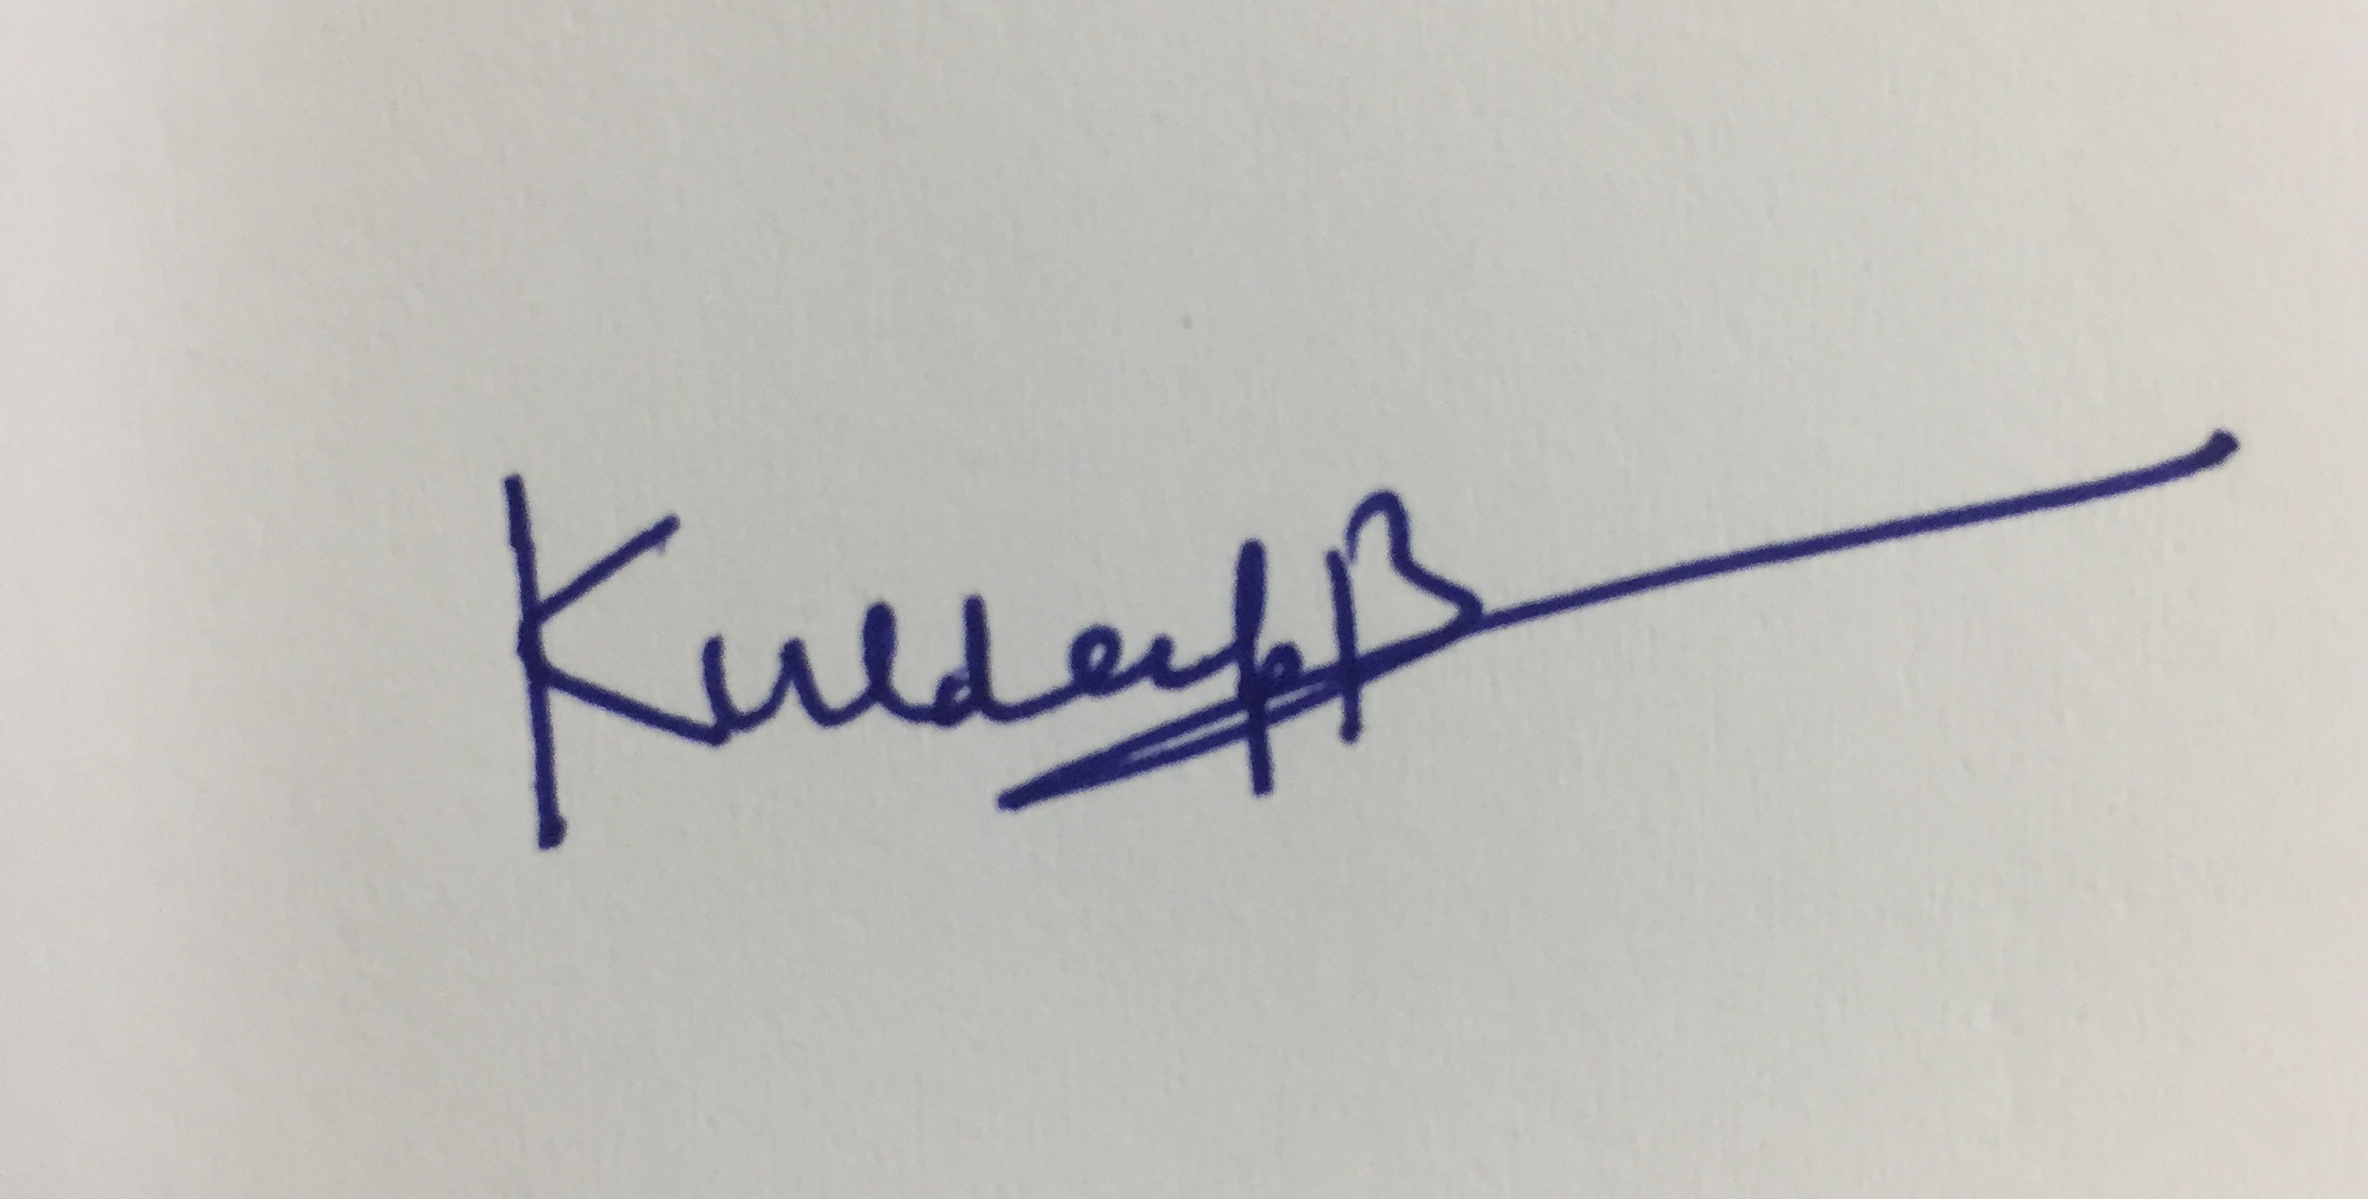 Kuldeep B